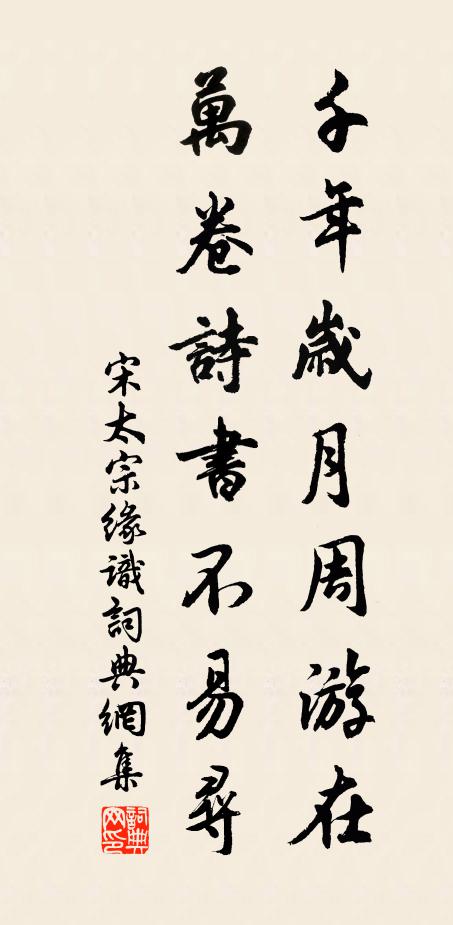 千年歲月周游在
萬卷詩書不易尋
宋太宗緣識詞典網集
詞典网印